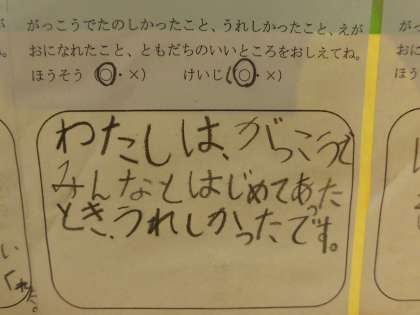 がっこうでたのしかったこと、うれしかったこと、えが
おになれたこと、ともだちのいいところをおしえてね。
ほうそう（○・×）　けいじ（○・×）
わたしは、がっこうで
みんなとはじめてあった
とき、うれしかったです。